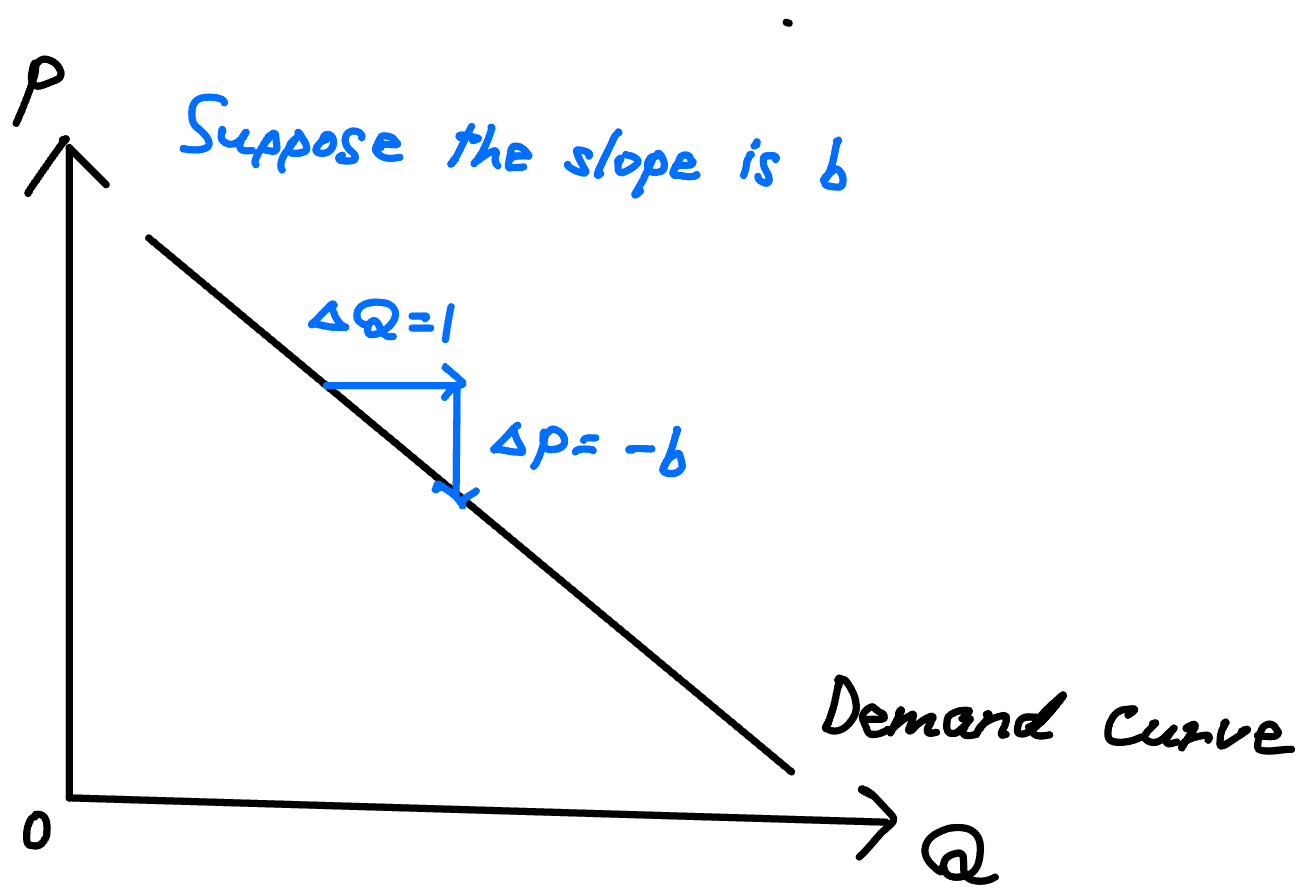 P
Suppose the slope is b
ΔQ=1
ΔP= -b
Demand curve
0
Q